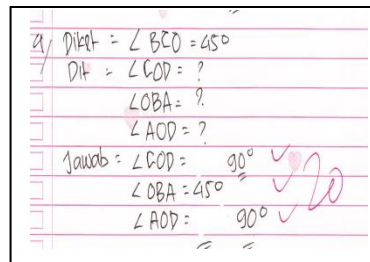 9/ Diket = ∠BCO = 45°
Dit = ∠COD = ?
∠OBA = ?
∠AOD = ?
Jawab = ∠COD = 90° ✓
∠OBA = 45° ✓
∠AOD = 90° ✓
20